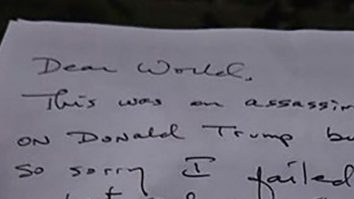 Dear World,
This was an assassin
ON Donald Trump bu
so sorry I failed